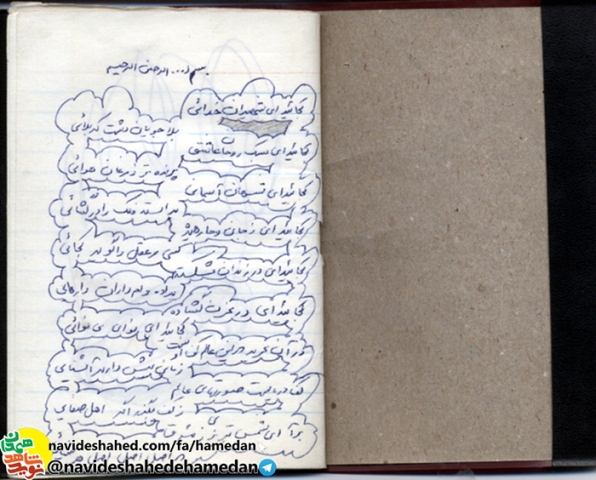 بسم ا... الرحمن الرحیم
کجائید ای شهیدان خدائی
بلا جویان دشت کربلائی
کجائید ای سبک روحان عاشق
پرنده تر ز مرغان هوائی
کجائید ای شهان آسمانی
بدانسته فلک را درگشائی
کجائید ای ز جان و جا رهیده
کسی مر عقل را گوید کجائی
کجائید ای در زندان شکسته
بداده وام داران را رهائی
کجائید ای در مخزن گشاده
کجائید ای نوای بی نوائی
در آن بحرید عالم کف او
زمانی بیش دارید آشنایی
کف دریاست صورتهای عالم
ز کف بگذر اگر اهل صفایی
برآ ای شمس
اصل اصل
navideshahed.com/fa/hamedan
@navideshahedehamedan
نوید شاهد